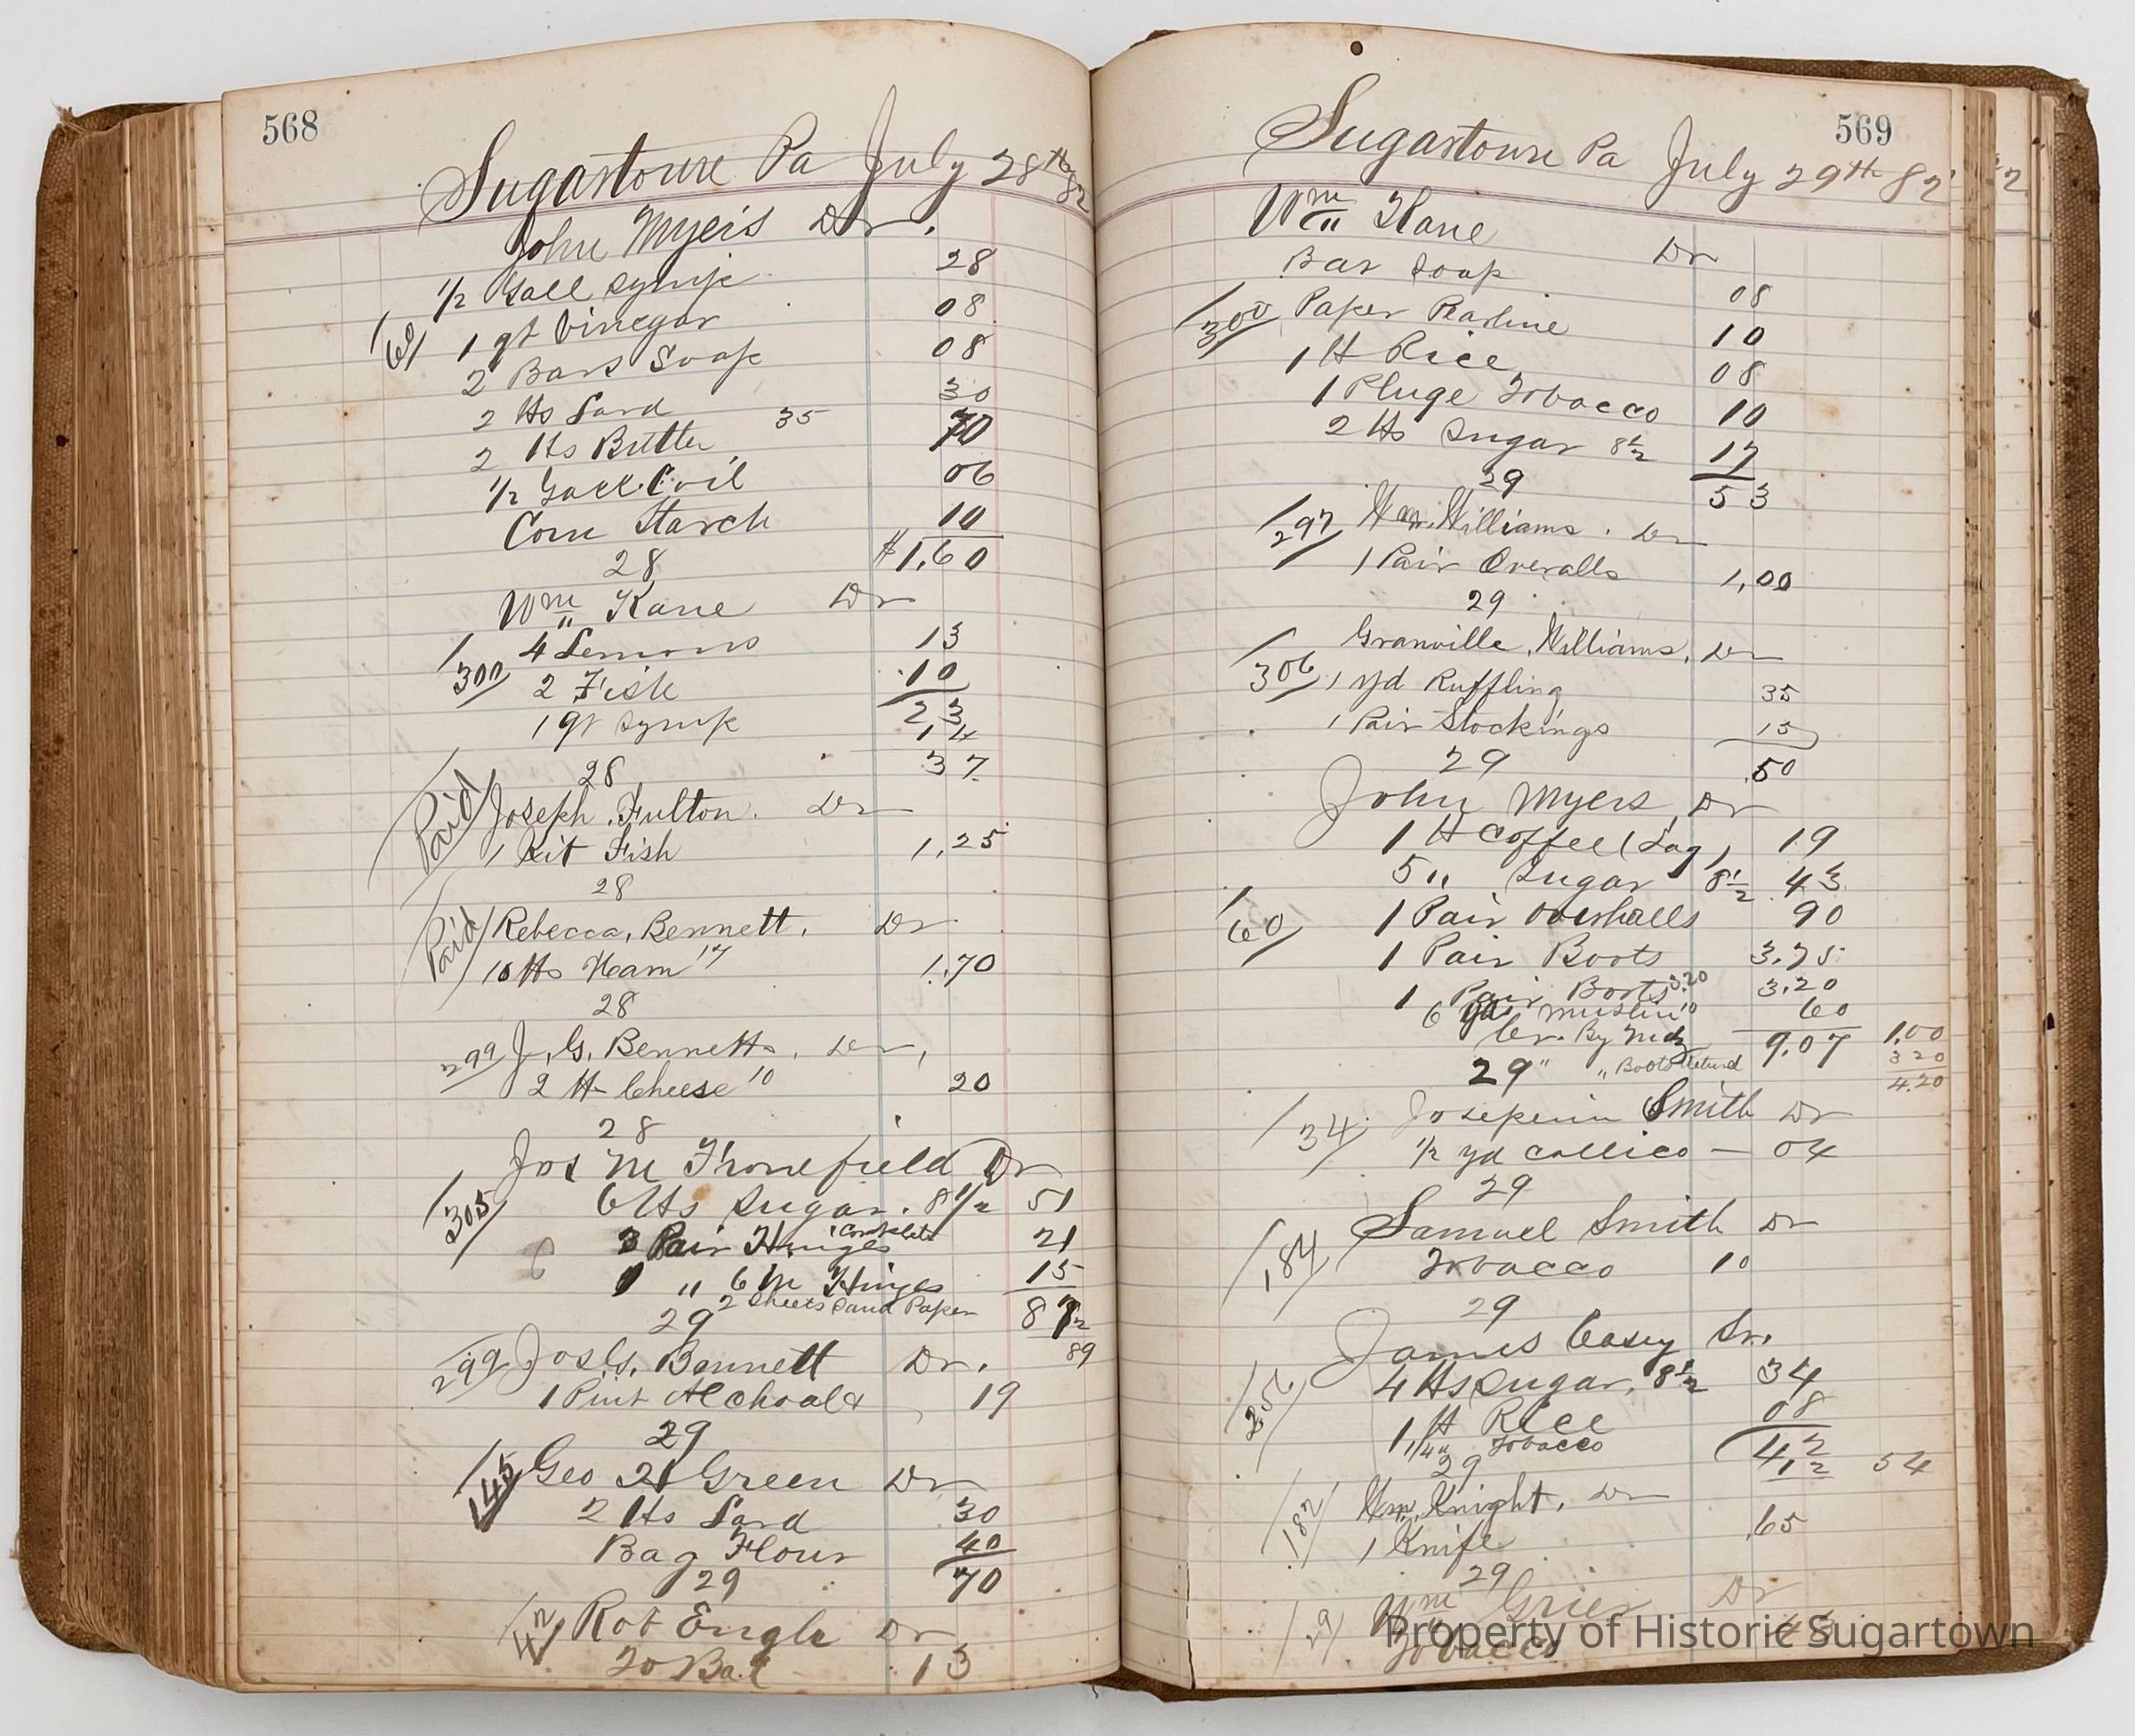 568
Sugartown Pa July 28th 82
John Myers Dr.
1/2 Gall Syrup 28
60 1 qt Vinegar 08
2 Bars Soap 08
2 lbs Lard 30
2 lbs Butter 35 70
1/2 Gall C. oil 06
Corn Starch 10
$1.60
28
Wm Kane Dr
4 Lemons 13
300 2 Fish 10
23
1 qt Syrup 14
37
28
Paid Joseph Fulton. Dr
1 Kit Fish 1,25
28
Paid Rebecca Bennett. Dr
10 lbs Ham 17 1.70
28
299 J. G. Bennett. Dr,
2 lb Cheese 10 20
28
Jos M Fronefield Dr
305 6 lbs Sugar. 8 1/2 51
3 Pair Hinges Complete 21
1 " 6 in Hinges 15
2 Sheets Sand Paper 87
29 2
89
299 Jos G. Bennett Dr.
1 Pint Alchoald 19
29
145 Geo Green Dr
2 lbs Lard 30
Bag Flour 40
29 70
42 Rob Engle Dr
To Bal 13
569
Sugartown Pa July 29th 82
Wm Kane Dr
Bar Soap 08
300 Paper Pearline 10
1 lb Rice 08
1 Pluge Tobacco 10
2 lbs Sugar 8 1/2 17
29 53
297 Wm. Williams. Dr
1 Pair Overalls 1,00
29
Granville Williams. Dr
306 1 yd Ruffling 35
1 Pair Stockings 15
29 .50
John Myers Dr
1 lb Coffee (Lag) 19
5 " Sugar 8 1/2 43
60 1 Pair Overhalls 90
1 Pair Boots 3.75
1 Pair Boots 3.20 3.20
6 yds Muslin 10 60
Cr. By Mdz 9.07 1.00
29 " " Boots Returned 3 20
4.20
34 Josephin Smith Dr
1/2 yd Callico — 04
29
Samuel Smith Dr
184 Tobacco 10
29
James Casey Dr.
256 4 lbs Sugar, 8 1/2 34
1 lb Rice 08
1/4 " Tobacco 42
29 12 54
182 Wm. Knight. Dr
1 Knife .65
29
Wm Grier Dr
Tobacco
Property of Historic Sugartown